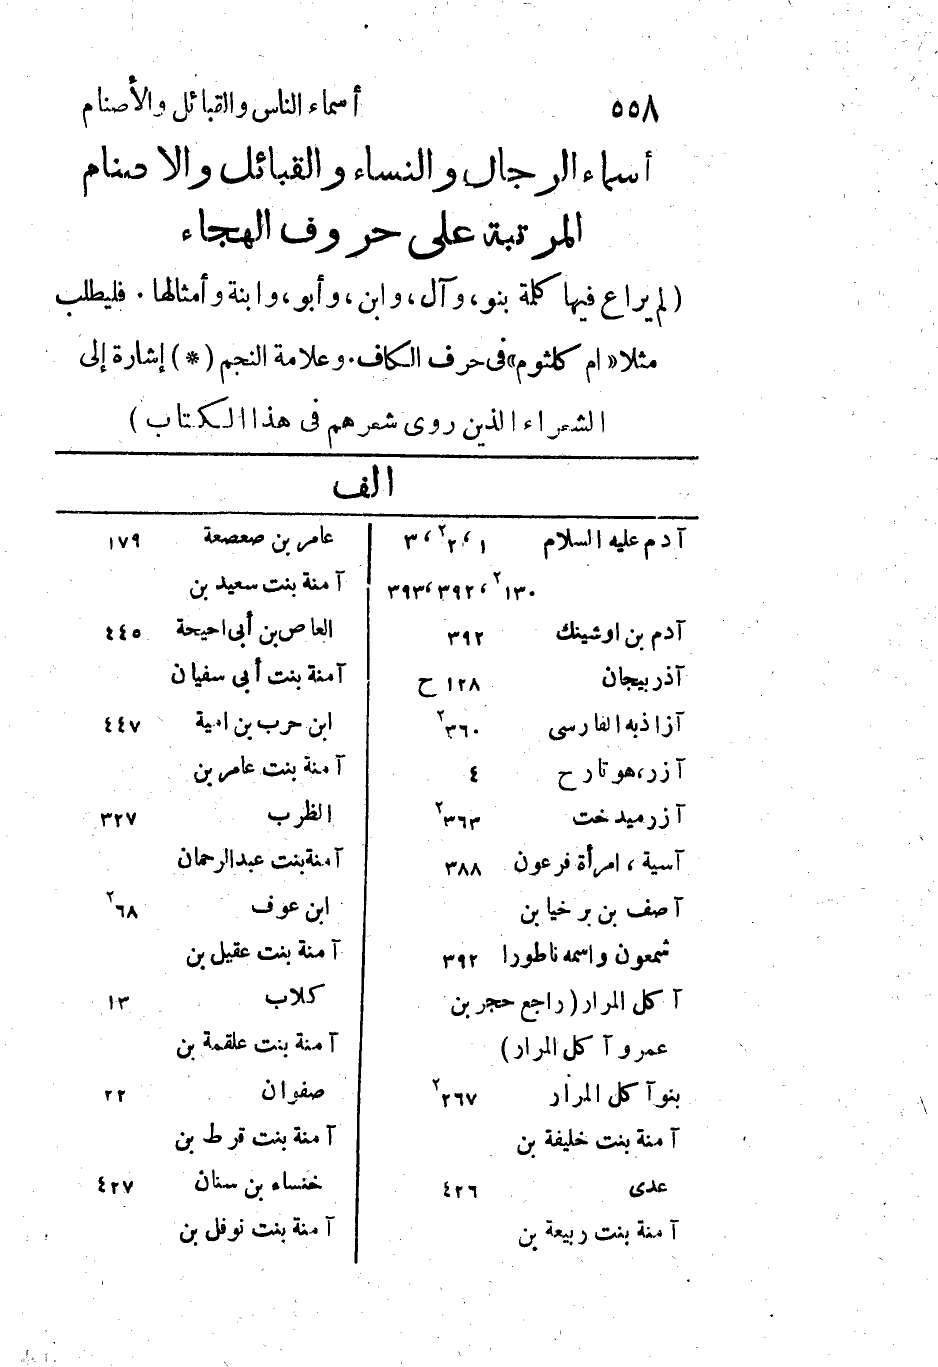 ٥٥٨ أسماء الناس والقبائل والأصنام
أسماء الرجال والنساء والقبائل والاصنام
المرتبة على حروف الهجاء
(لم يراع فيها كلمة بنو، وآل، وابن، وأبو، وابنة وأمثالها. فليطلب
مثلا «ام كلثوم» فى حرف الكاف. وعلامة النجم (*) إشارة إلى
الشعراء الذين روى شعرهم فى هذا الكتاب)
الف
آدم عليه السلام ١، ٢٢، ٣
١٣٠٢، ٣٩٢، ٣٩٣
آدم بن اوشينك ٣٩٢
آذربيجان ١٢٨ ح
آزاذبه الفارسى ٣٦٠٢
آزر، هو تارح ٤
آزرميدخت ٣٦٣٢
آسية، امرأة فرعون ٣٨٨
آصف بن برخيا بن
شمعون واسمه ناطورا ٣٩٢
آكل المرار (راجع حجر بن
عمرو آكل المرار)
بنو آكل المرار ٢٦٧٢
آمنة بنت خليفة بن
عدى ٤٢٦
آمنة بنت ربيعة بن
عامر بن صعصعة ١٧٩
آمنة بنت سعيد بن
العاص بن أبى احيحة ٤٤٥
آمنة بنت أبى سفيان
ابن حرب بن امية ٤٤٧
آمنة بنت عامر بن
الظرب ٣٢٧
آمنة بنت عبدالرحمان
ابن عوف ٦٨٢
آمنة بنت عقيل بن
كلاب ١٣
آمنة بنت علقمة بن
صفوان ٢٢
آمنة بنت قرط بن
خنساء بن سنان ٤٢٧
آمنة بنت نوفل بن